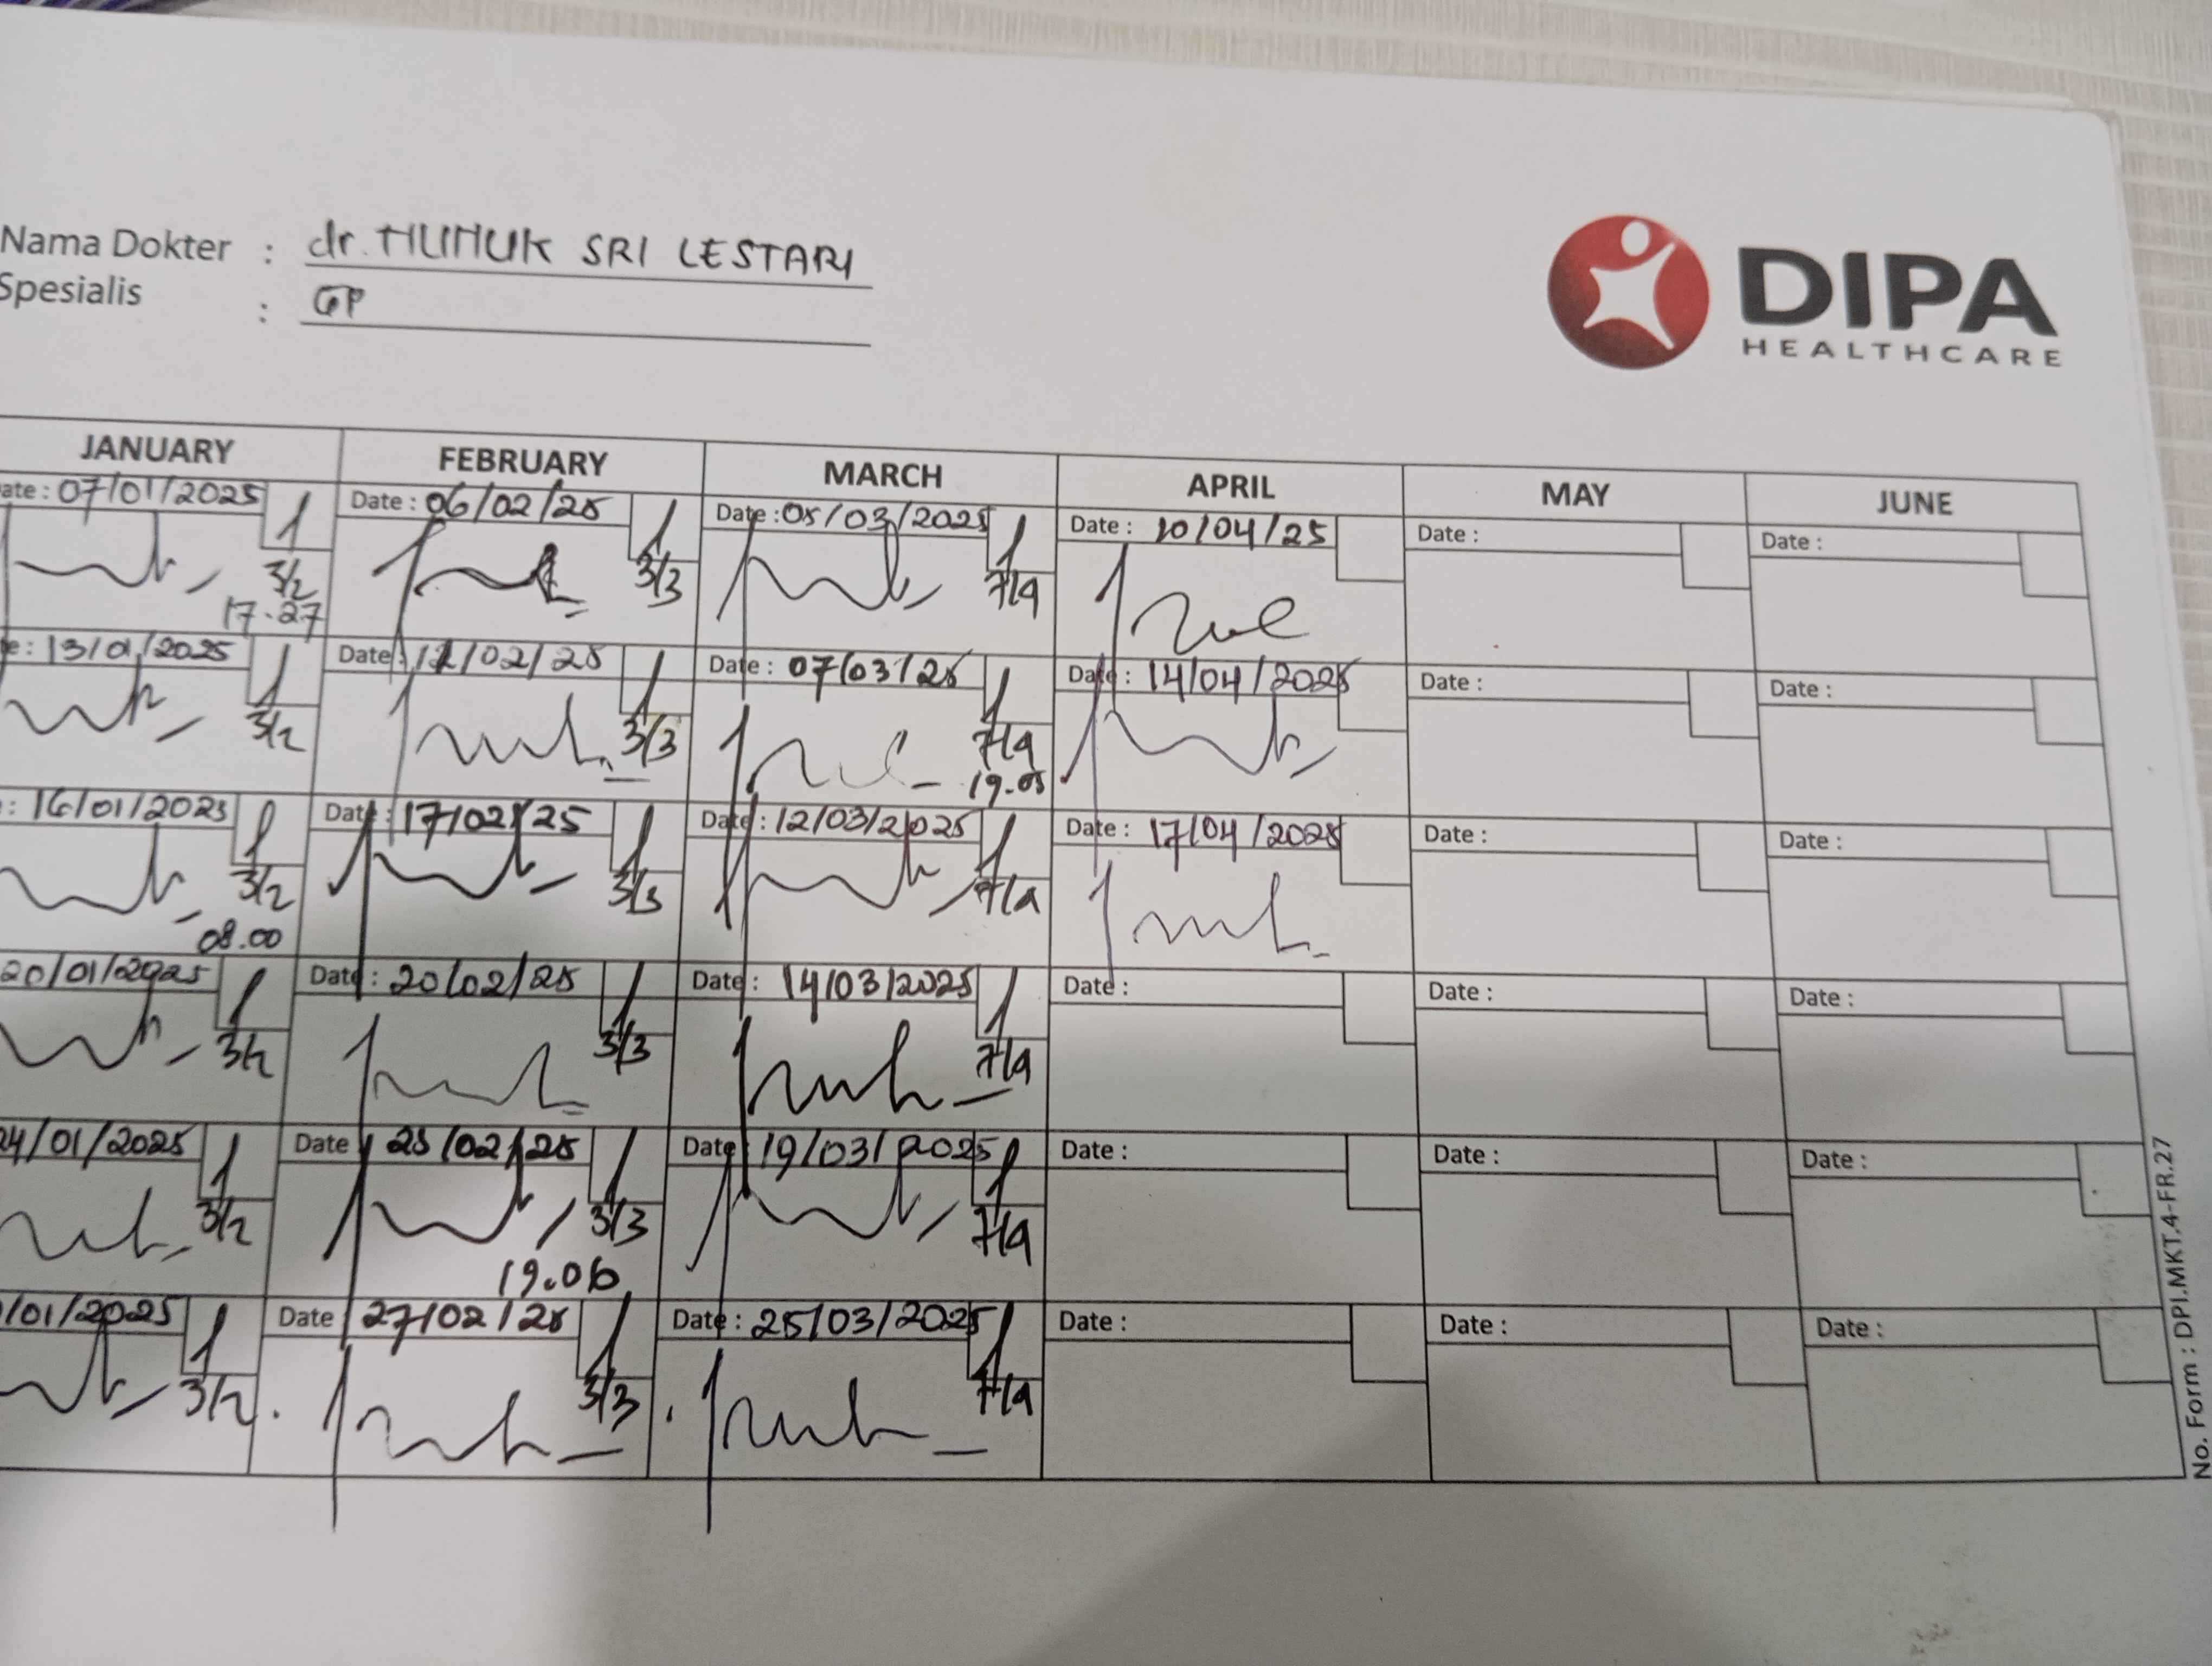 Nama Dokter : dr. HUHUK SRI LESTARI
Spesialis : GP
DIPA
HEALTHCARE
JANUARY FEBRUARY MARCH APRIL MAY JUNE
ate : 07/01/2025 Date : 06/02/25 Date : 05/03/2025 Date : 10/04/25 Date : Date :
3/2 3/3 7/4
17.27
e : 13/01/2025 Date : 12/02/25 Date : 07/03/25 Date : 14/04/2025 Date : Date :
3/2 3/3 7/4
19.05
: 16/01/2025 Date : 17/02/25 Date : 12/03/2025 Date : 17/04/2025 Date : Date :
3/2 3/3 7/4
08.00
20/01/2025 Date : 20/02/25 Date : 14/03/2025 Date : Date : Date :
3/2 3/3 7/4
24/01/2025 Date 25/02/25 Date : 19/03/2025 Date : Date : Date :
3/2 3/3 7/4
19.06
/01/2025 Date 27/02/25 Date : 25/03/2025 Date : Date : Date :
3/2 3/3 7/4
No. Form : DPI.MKT.4-FR.27